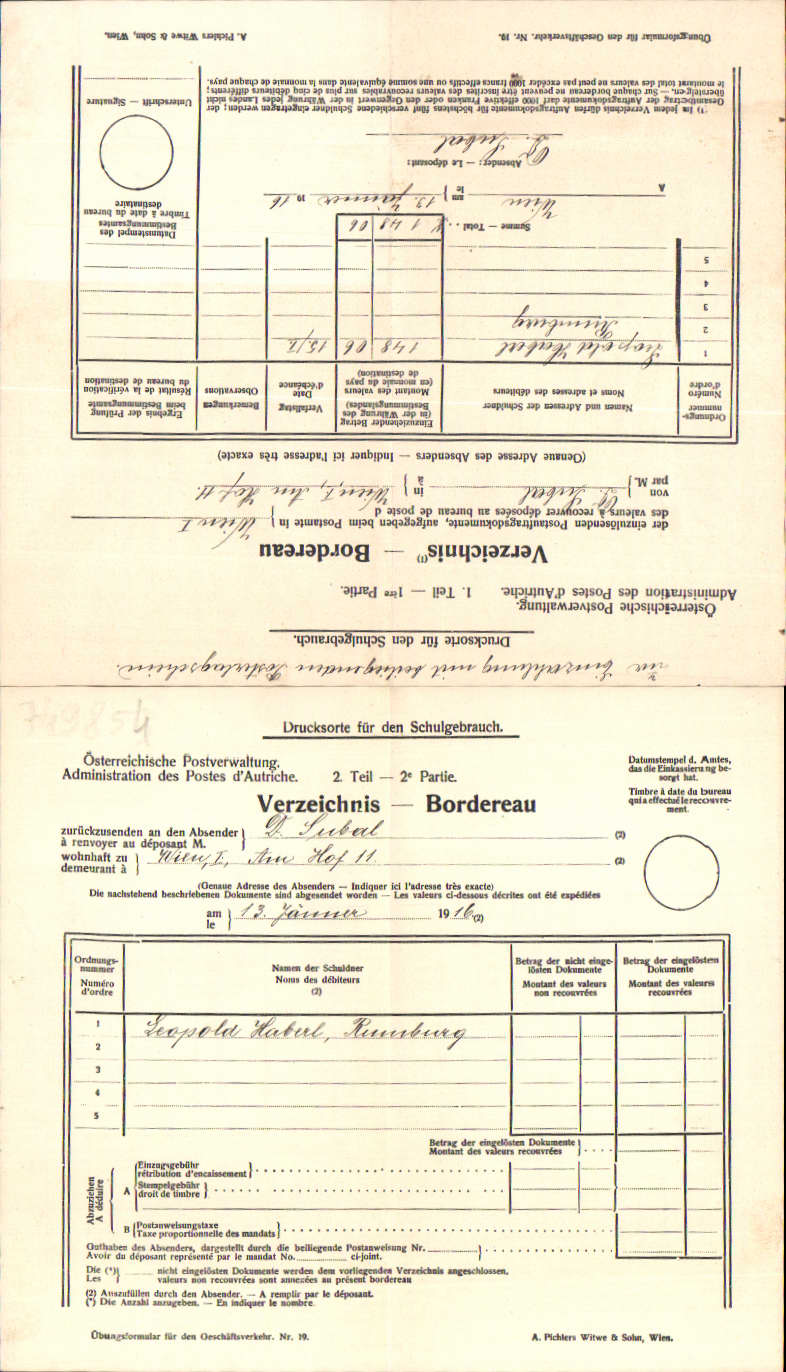 zur Einzahlung mit beiliegendem Posterlagschein.
Drucksorte für den Schulgebrauch.
Österreichische Postverwaltung.
Administration des Postes d'Autriche. 1. Teil — 1ère Partie.
Verzeichnis(1) — Bordereau
der einzulösenden Postauftragsdokumente, aufgegeben beim Postamte in } Wien I
des valeurs à recouvrer déposées au bureau de poste d
von } D. Subal in } Wien, I., Am Hof 11.
par M. à
(Genaue Adresse des Absenders — Indiquer ici l'adresse très exacte)
Ordnungs-nummer Numéro d'ordre
Namen und Adressen der Schuldner Noms et adresses des débiteurs
Einzuziehender Betrag (in der Währung des Bestimmungslandes) Montant des valeurs (en monnaie du pays de destination)
Verfallstag Date d'échéance
Bemerkungen Observations
Ergebnis der Prüfung beim Bestimmungsamte Résultat de la vérification du bureau de destination
1 Leopold Haberl 148 06 15/2.
2 Rumburg
3
4
5
Summe — Total . . K 148 06
Datumstempel des Bestimmungsamtes
Timbre à date du bureau destinataire
A Wien am } 13. Jänner 1916
le
Absender: — Le déposant:
D. Subal
Unterschrift — Signature
¹) In jedem Verzeichnis dürfen Auftragsdokumente für höchstens fünf verschiedene Schuldner eingetragen werden; der
Gesamtbetrag der Auftragsdokumente darf 1000 effektive Franken oder den Gegenwert in der Währung jedes Landes nicht
übersteigen. — Sur chaque bordereau ne peuvent être inscrites des valeurs recouvrables sur plus de cinq débiteurs différents;
le montant total des valeurs ne peut pas excéder 1000 francs effectifs ou une somme équivalente dans la monnaie de chaque pays.
Übungsformular für den Geschäftsverkehr. Nr. 19. A. Pichlers Witwe & Sohn, Wien.
749854
Drucksorte für den Schulgebrauch.
Österreichische Postverwaltung.
Administration des Postes d'Autriche. 2. Teil — 2e Partie.
Datumstempel d. Amtes, das die Einkassierung be-sorgt hat.
Timbre à date du bureau qui a effectué le recouvre-ment.
Verzeichnis — Bordereau
zurückzusenden an den Absender } D. Subal (2)
à renvoyer au déposant M.
wohnhaft zu } Wien, I., Am Hof 11. (2)
demeurant à
(Genaue Adresse des Absenders — Indiquer ici l'adresse très exacte)
Die nachstehend beschriebenen Dokumente sind abgesendet worden — Les valeurs ci-dessous décrites ont été expédiées
am } 13. Jänner 1916 (2)
le
Ordnungs-nummer Numéro d'ordre
Namen der Schuldner Noms des débiteurs (2)
Betrag der nicht einge-lösten Dokumente Montant des valeurs non recouvrées
Betrag der eingelösten Dokumente Montant des valeurs recouvrées
1 Leopold Haberl, Rumburg
2
3
4
5
Betrag der eingelösten Dokumente }
Montant des valeurs recouvrées
Abzuziehen
A déduire
A { Einzugsgebühr
rétribution d'encaissement }
Stempelgebühr
droit de timbre }
B { Postanweisungstaxe
Taxe proportionnelle des mandats }
Guthaben des Absenders, dargestellt durch die beiliegende Postanweisung Nr.
Avoir du déposant représenté par le mandat No. ci-joint.
Die (*) } nicht eingelösten Dokumente werden dem vorliegenden Verzeichnis angeschlossen.
Les valeurs non recouvrées sont annexées au présent bordereau
(2) Auszufüllen durch den Absender. — A remplir par le déposant.
(*) Die Anzahl anzugeben. — En indiquer le nombre.
Übungsformular für den Geschäftsverkehr. Nr. 19. A. Pichlers Witwe & Sohn, Wien.